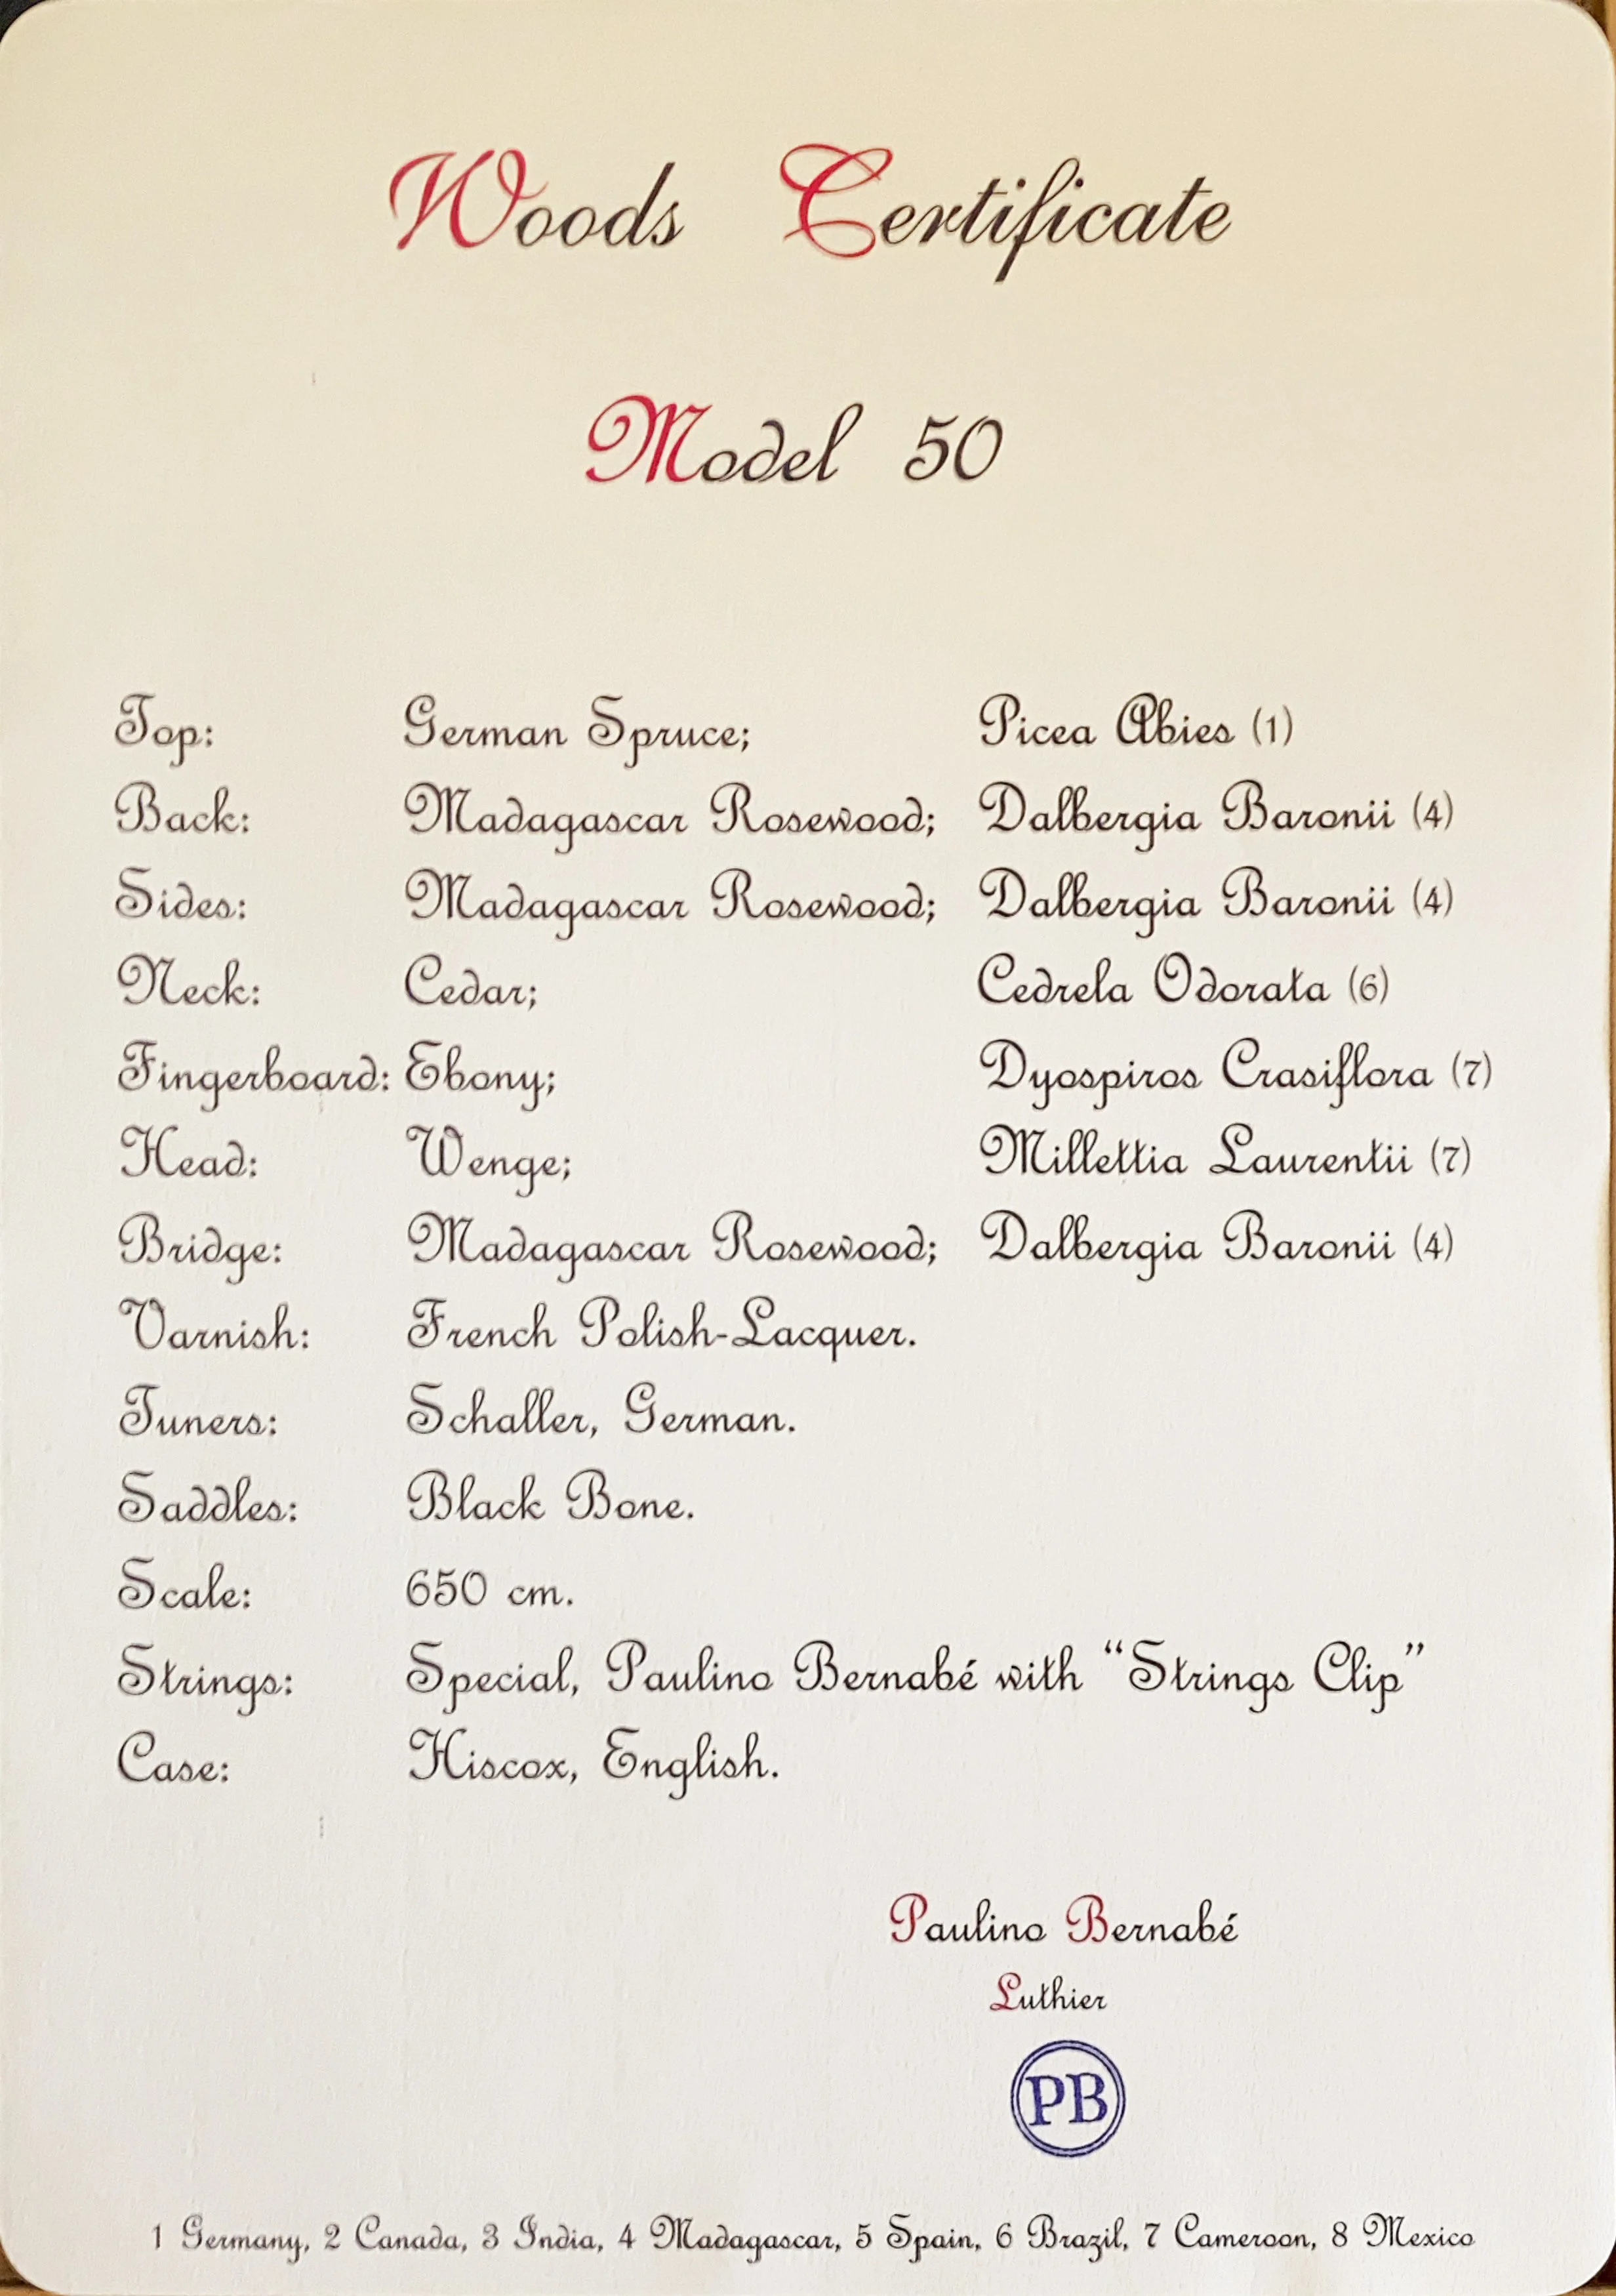 Woods Certificate
Model 50
Top: German Spruce; Picea Abies (1)
Back: Madagascar Rosewood; Dalbergia Baronii (4)
Sides: Madagascar Rosewood; Dalbergia Baronii (4)
Neck: Cedar; Cedrela Odorata (6)
Fingerboard: Ebony; Dyospiros Crasiflora (7)
Head: Wenge; Millettia Laurentii (7)
Bridge: Madagascar Rosewood; Dalbergia Baronii (4)
Varnish: French Polish-Lacquer.
Tuners: Schaller, German.
Saddles: Black Bone.
Scale: 650 cm.
Strings: Special, Paulino Bernabé with “Strings Clip”
Case: Hiscox, English.
Paulino Bernabé
Luthier
PB
1 Germany, 2 Canada, 3 India, 4 Madagascar, 5 Spain, 6 Brazil, 7 Cameroon, 8 Mexico